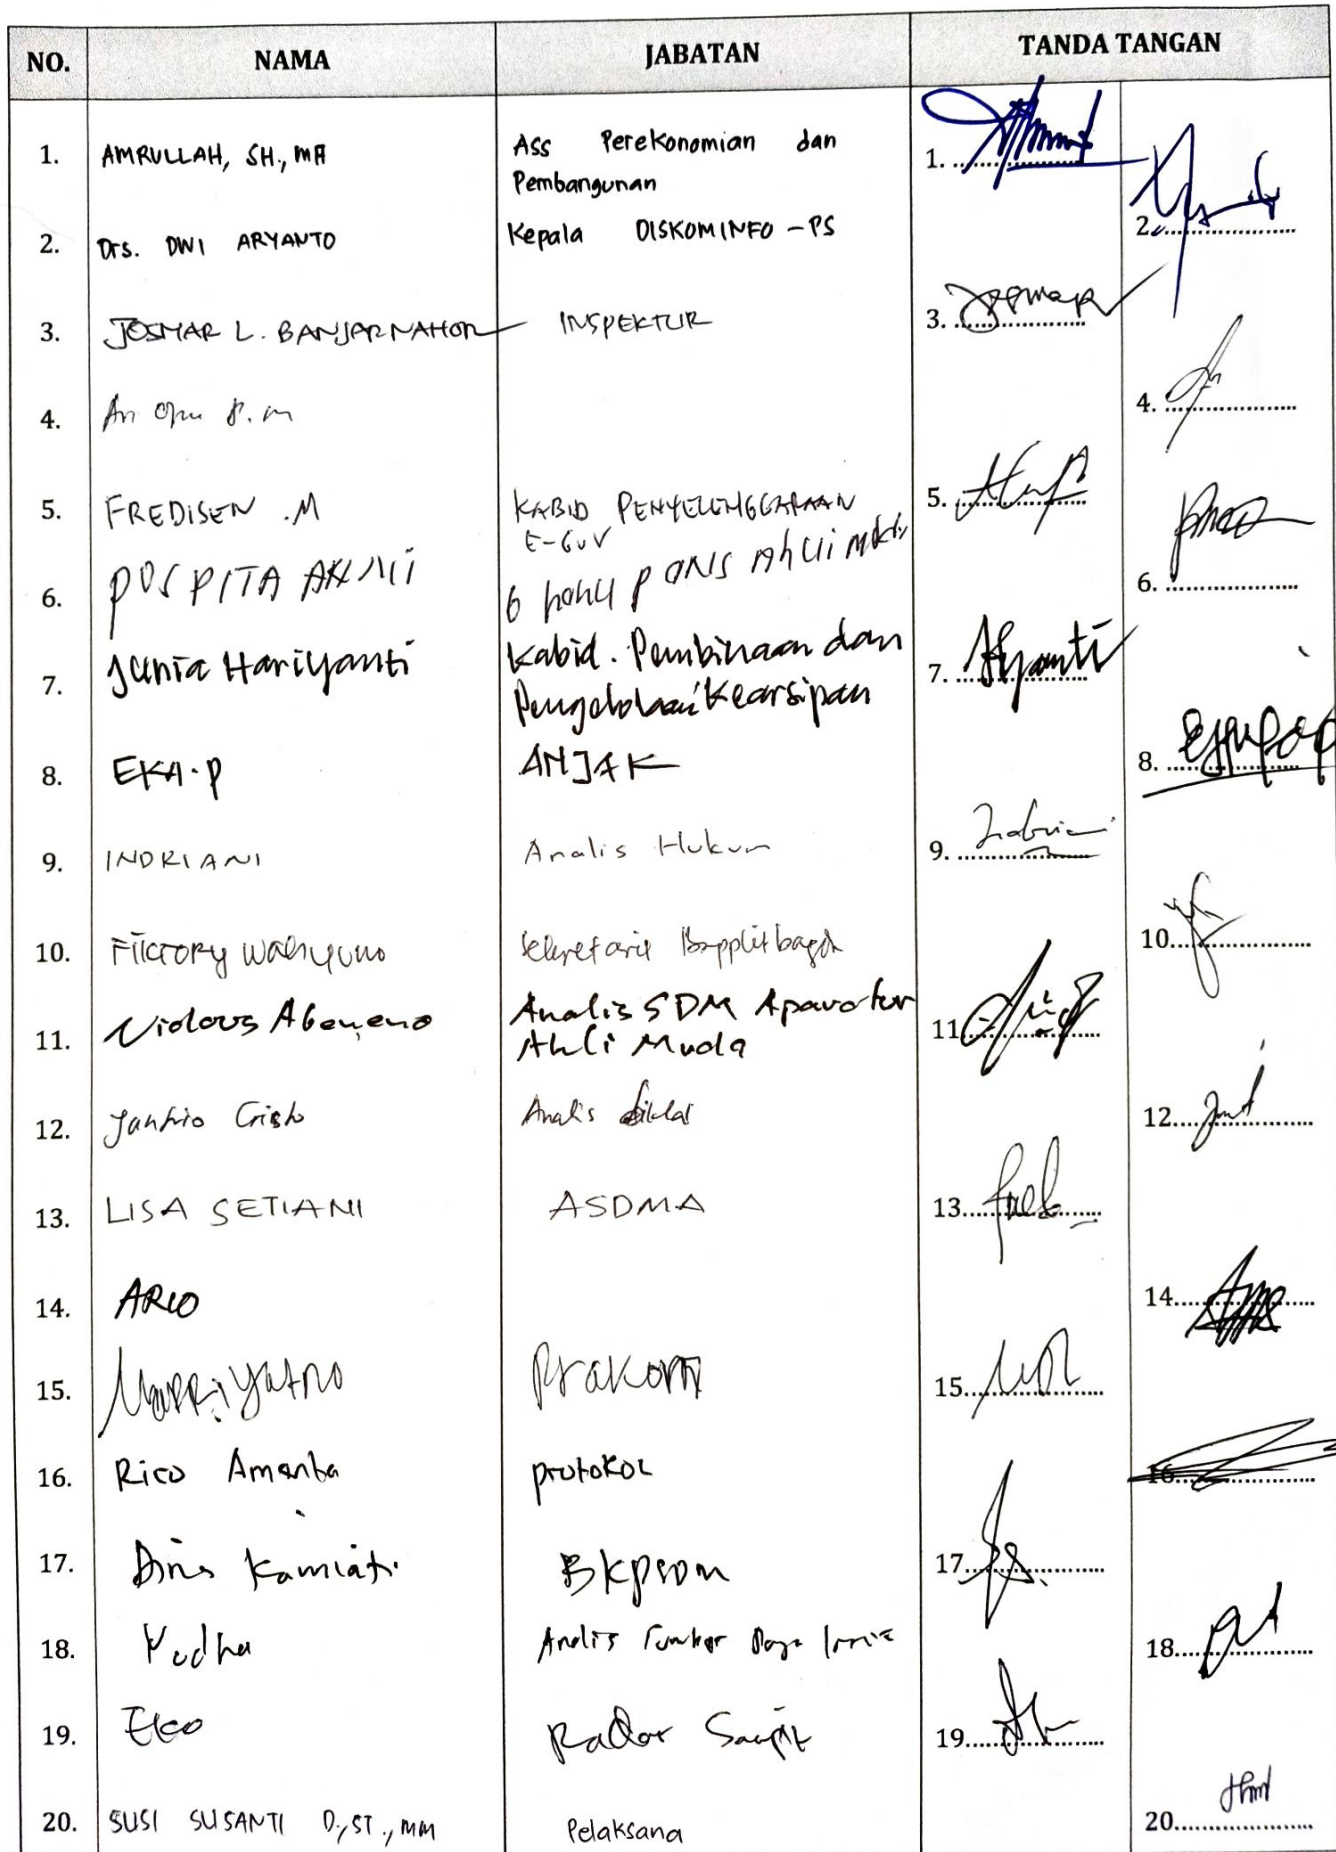 NO. NAMA JABATAN TANDA TANGAN
1. AMRULLAH, SH., MA Ass Perekonomian dan 1.
Pembangunan
2. Drs. DWI ARYANTO Kepala DISKOMINFO-PS 2.
3. JOSMAR L. BANJARNAHOR INSPEKTUR 3.
4. 4.
5. FREDISEN .M KABID PENYELENGGARAAN 5.
E-GOV
6. PUSPITA 6.
7. Junia Hariyanti Kabid. Pembinaan dan 7. Hyanti
Pengelolaan Kearsipan
8. EKA.P ANJAK 8.
9. INDRIANI Analis Hukum 9.
10. Fiktory Wahyuno Sekretaris 10.
11. Analis SDM Aparatur 11.
Ahli Muda
12. Analis diklat 12.
13. LISA SETIANI ASDMA 13.
14. ARIO 14.
15. Prakom 15.
16. Rico Amanta protokol 16.
17. Dina Kamiati BKPSDM 17.
18. Yudha Analis Sumber Daya 18.
19. Eko Radar Sampit 19.
20. SUSI SUSANTI D., ST., MM Pelaksana 20.